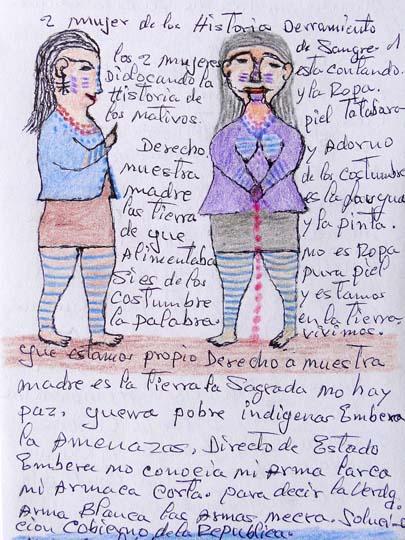 2 mujer de los Historia Derramiento
de Sangre. d
los 2 mujeres
Didocando la
Historia de
los Nativos.
Derecho
muestra
madre
las tierra
de que
Alimentaba
Si es de los
costumbre
la palabra.
esta contando.
y la Ropa.
piel Tatabara
y Adorno
de los costumbre
es la
y la pinta.
no es Ropa
pura piel
y estamos
en la tierra
vivimos.
que estamos propio Derecho a muestra
madre es la tierra la Sagrada no hay
paz, guerra pobre indigenas Embera
la Amenazas, Directo de Estado
Embera no conocia mi Arma larca
mi Armaca corta. para decir la
Arma Blanca las Armas necra. Soluci-
cion Cobierno de la Republica.